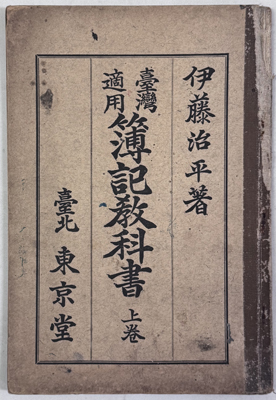 伊藤治平著
臺灣適用簿記敎科書上卷
臺北東京堂